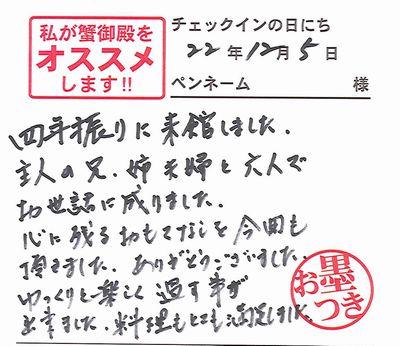 私が蟹御殿を
オススメ
します!!
チェックインの日にち
22年12月5日
ペンネーム 様
四年振りに来館しました。
主人の兄、姉夫婦と六人で
お世話に成りました。
心に残るおもてなしを今回も
頂きました。ありがとうございました。
ゆっくりと楽しく過す事が
出来ました。料理もとても満足しました。
お墨つき